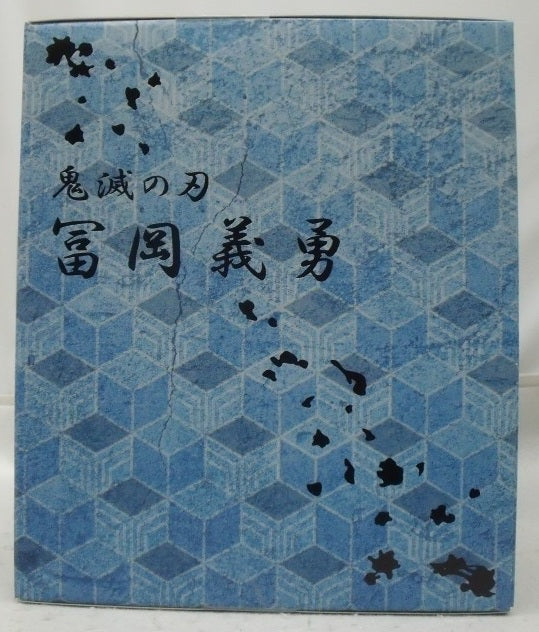 鬼滅の刃
冨岡義勇